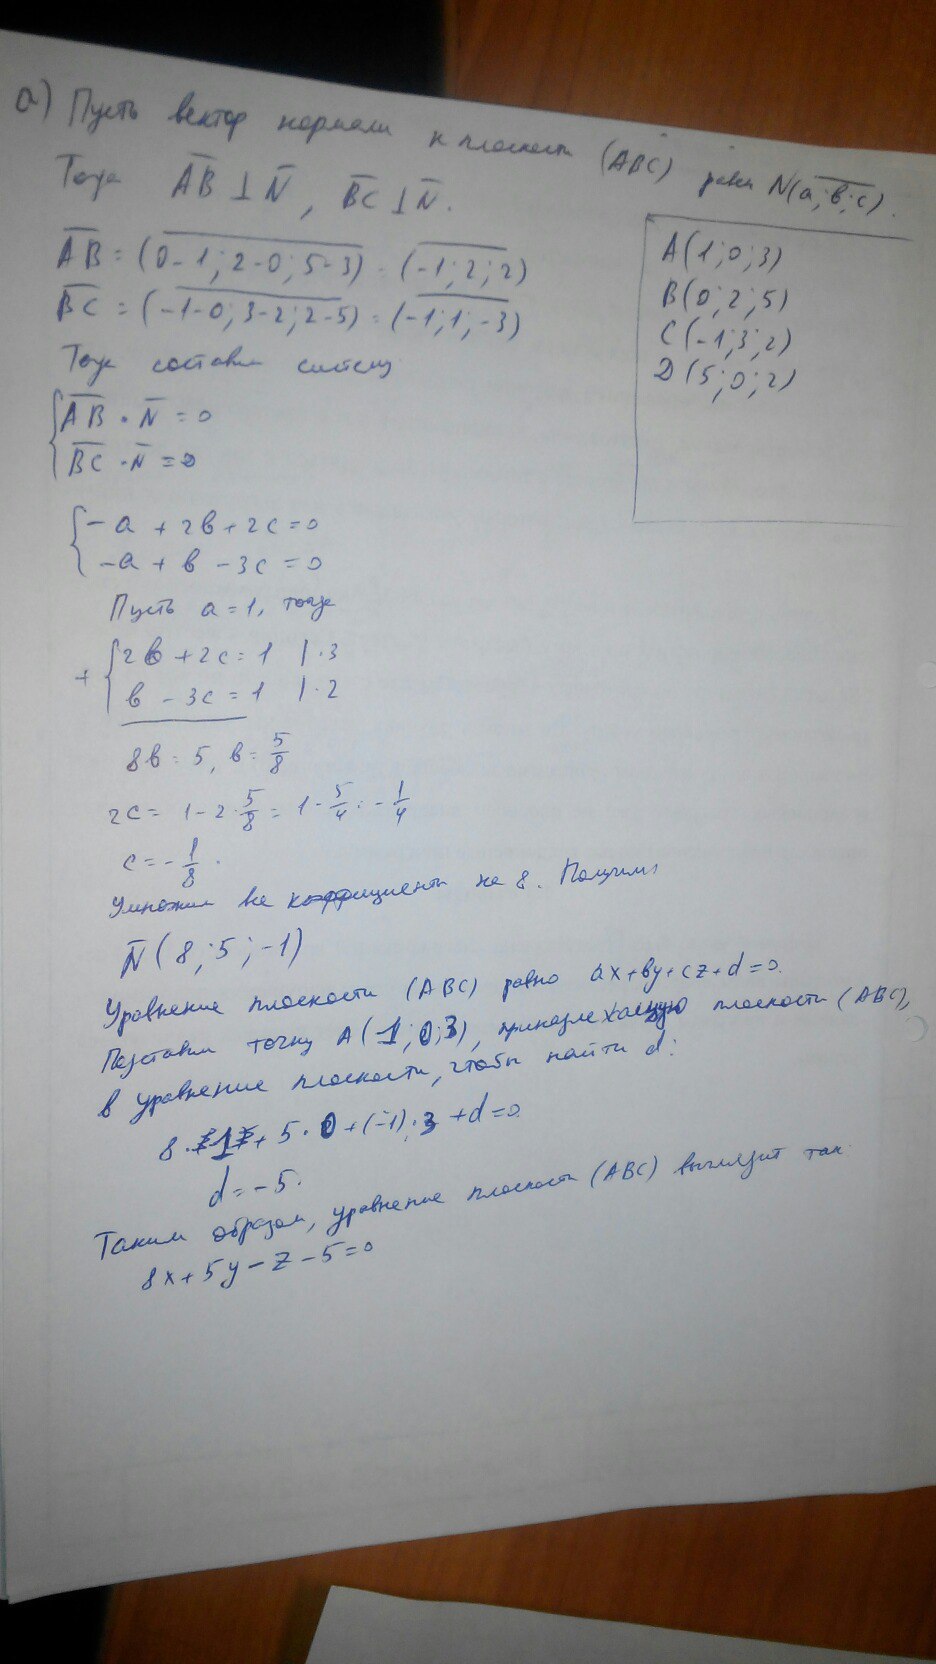 а) Пусть вектор нормали к плоскости (ABC) равен N(a; в; c).
Тогда AB ⊥ N, BC ⊥ N.
AB = (0-1; 2-0; 5-3) = (-1; 2; 2)
BC = (-1-0; 3-2; 2-5) = (-1; 1; -3)
Тогда составим систему
AB · N = 0
BC · N = 0
-a + 2в + 2c = 0
-a + в - 3c = 0
Пусть a = 1, тогда
+ 2в + 2c = 1 | · 3
в - 3c = 1 | · 2
8в = 5, в = 5/8
2c = 1 - 2 · 5/8 = 1 - 5/4 = -1/4
c = -1/8.
Умножим все коэффициенты на 8. Получим:
N(8; 5; -1)
Уравнение плоскости (ABC) равно ax + вy + cz + d = 0.
Подставим точку A(1; 0; 3), принадлежащую плоскости (ABC),
в уравнение плоскости, чтобы найти d:
8 · 1 + 5 · 0 + (-1) · 3 + d = 0
d = -5.
Таким образом, уравнение плоскости (ABC) выглядит так
8x + 5y - z - 5 = 0
A(1; 0; 3)
B(0; 2; 5)
C(-1; 3; 2)
D(5; 0; 2)